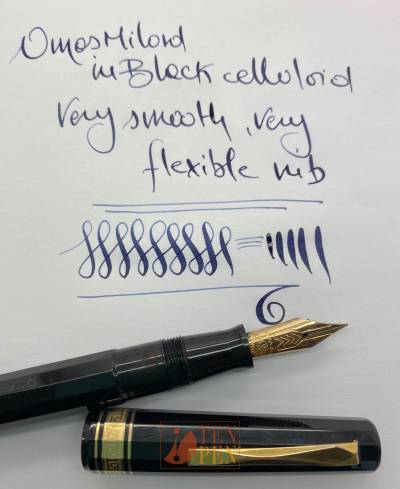 Omas Milord
in Black celluloid
Very smooth, very
flexible nib
PEN